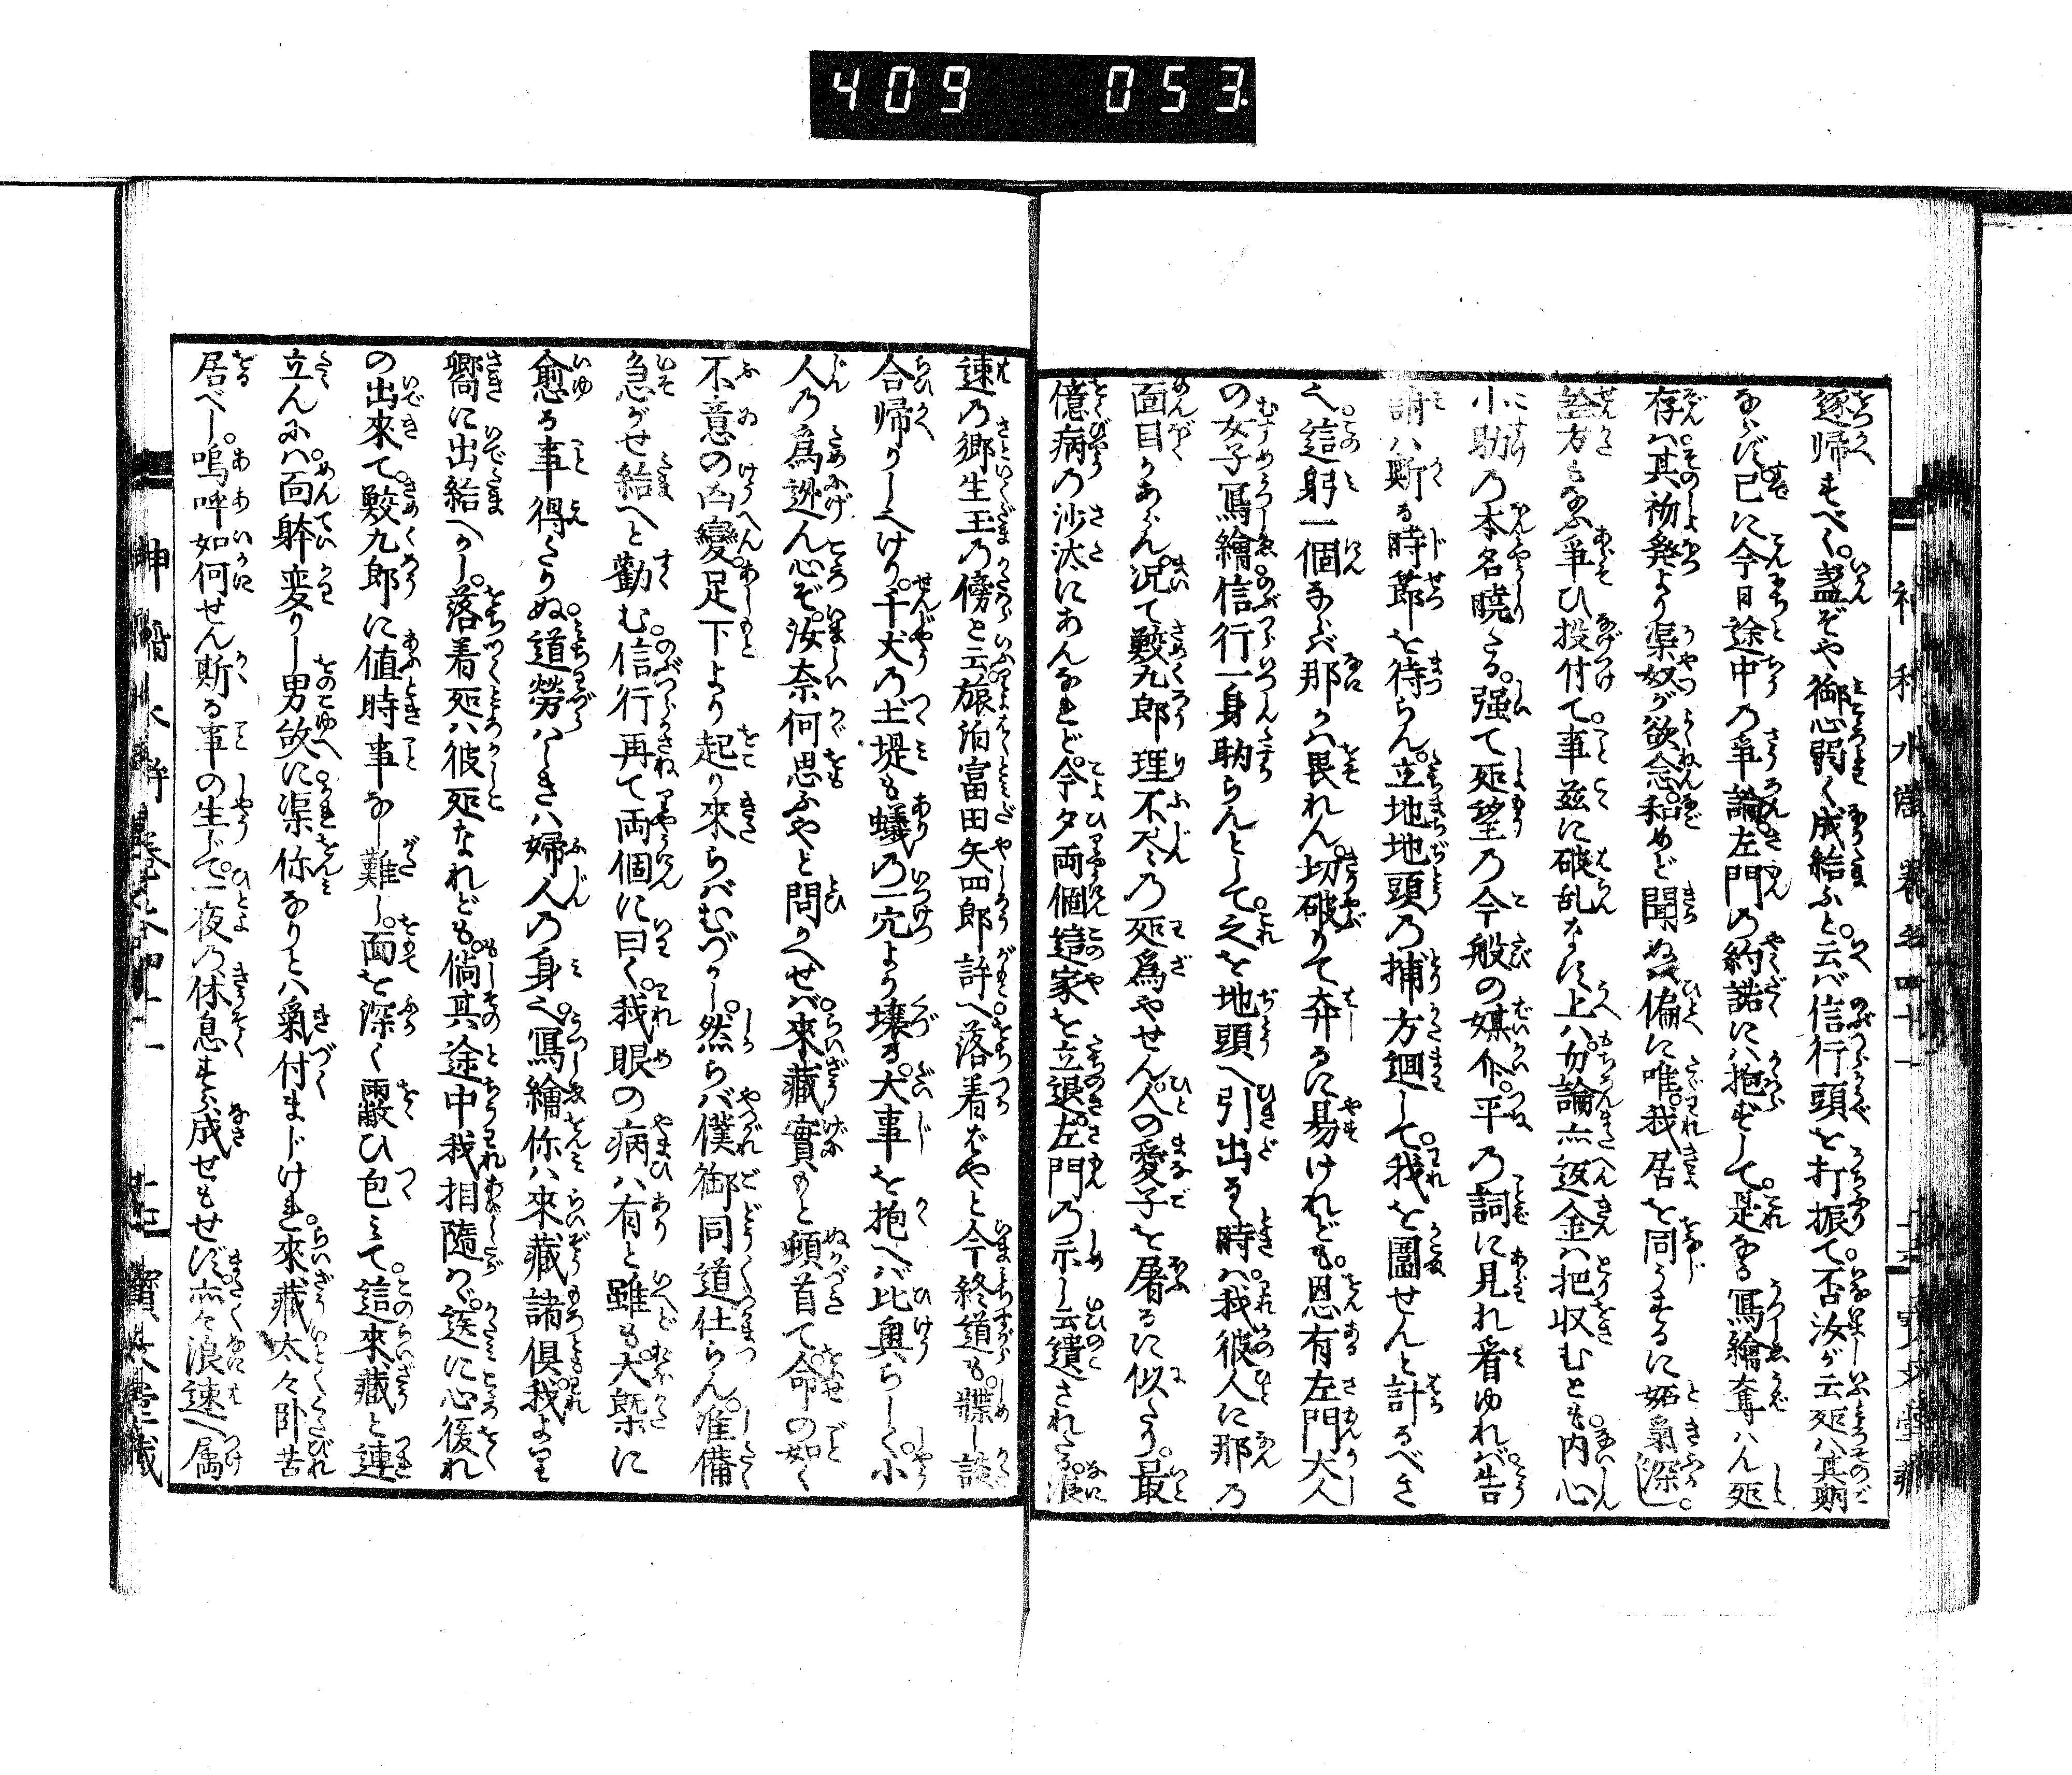 409 053.
逐帰もべく。盍ぞや御心弱く成給ふと。云バ信行頭を打振て。否汝が云処ハ其期
ならず已に今日途中乃争論。左門の約諾にハ抱ずして。是なる冩繪奪ハん処
存ハ其初発より渠奴が欲念。和めど聞ぬハ偏に唯。我居を同うするに妬氣深し。
詮方もなふ争ひ投付て。事茲に破乱なす上ハ。勿論亦返金ハ把収むとも。内心
小助乃本名曉さる。强て処望乃今般の媒介。平乃詞に見れ看ゆれバ告
訴ハ斯る時節を待らん。立地地頭乃捕方廻して。我を圖せんと計るべき
也。這躬一個ならバ那かハ畏れん。切破りて奔るに易けれども。恩有左門大人
の女子冩繪。信行一身助らんとして。之を地頭へ引出さるゝ時ハ。我彼人に那乃
面目かあらん。况て鮫九郎理不尽乃処爲やせん。人の愛子を屠るに似たり。最
億病乃沙汰にあんなれど。今夕両個這家を立退。左門乃示し云遺されたる。浪
速乃郷生玉乃傍と云。旅泊富田矢四郎許へ。落着ばやと今終道も。牒し談
合帰りしへけり。千丈乃土堤も蟻乃一穴より壊る。大事を抱へバ比興らしく。小
人乃爲迯ん心ぞ。汝奈何思ふやと問かへせバ。來藏實もと頓首て。命の如く
不意の凶變。足下より起り來らバむづかし。然らバ僕御同道仕らん。准備
急がせ給へと勸む。信行再て両個に曰く。我眼の病ハ有と雖も。大槩に
愈る事得たりぬ。道勞ハしきハ婦人乃身也。冩繪你ハ來藏諸倶。我より
嚮に出給へかし。落着処ハ彼処なれども。倘其途中我相隨ハゞ。迭に心後れ
の出來て。鮫九郎に値時事なし難し。面を深く覆ひ包みて。這來藏と連
立んにハ。面躰変りし男故に。渠你なりとハ氣付まじけれ。來藏太々卧苦
居べし。嗚呼如何せん斯る事の生じて。一夜乃休息もふ成せもせず。亦々浪速へ属